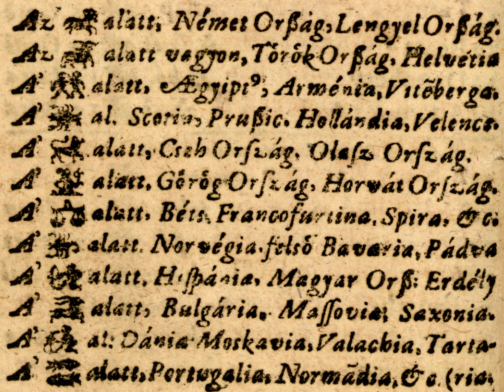 Az alatt, Német Orßág, Lengyel Orßág.
Az alatt vagyon, Török Orßág, Helvétia
A' alatt, Ægyiptꝰ, Arménia, Vitēberga.
A' al. Scotia, Prußic. Hollándia, Velencz.
A' alatt, Cseh Orſzág. Olasz Orſzág.
A' alatt. Görög Orſzág, Horvát Orſzág.
A' alatt. Béts. Francofurtina. Spira, &c.
A' alatt. Norvégia. felsö Bavaria, Pádva
A' alatt. Hiſpánia, Magyar Orß: Erdély
A' alatt, Bulgária, Maſſovia, Saxonia.
A' al: Dánia Moskavia, Valachia, Tarta-
A' alatt, Portugalia, Normādia, &c. (ria.